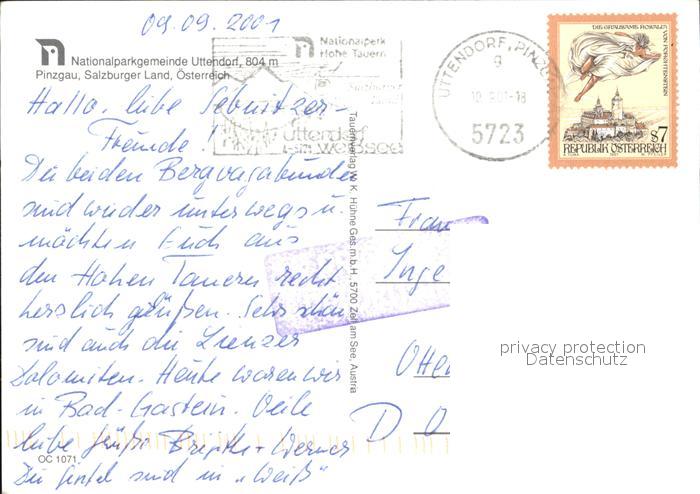 09.09.2001
Nationalparkgemeinde Uttendorf, 804 m
Pinzgau, Salzburger Land, Österreich
Nationalpark
Hohe Tauern
Salzburger
Land
uttendorf
weissee
UTTENDORF, PINZG
g
10.9.01-18
5723
DIE GRAUSAME ROSALIA
VON FORCHTENSTEIN
S7
REPUBLIK ÖSTERREICH
Hallo, liebe Sebnitzer-
Freunde!
Die beiden Bergvagabunden
sind wieder unterwegs u.
möchten Euch aus
den Hohen Tauern recht
herzlich grüßen. Sehr schön
sind auch die Lienzer
Dolomiten. Heute waren wir
in Bad-Gastein. Viele
liebe Grüße Brigitte + Werner
Die Gipfel sind in "Weiß"
OC 1071
Tauernverlag W. K. Hühne Ges.m.b.H., 5700 Zell am See, Austria
Frau
Inge
Otten
D O
privacy protection
Datenschutz